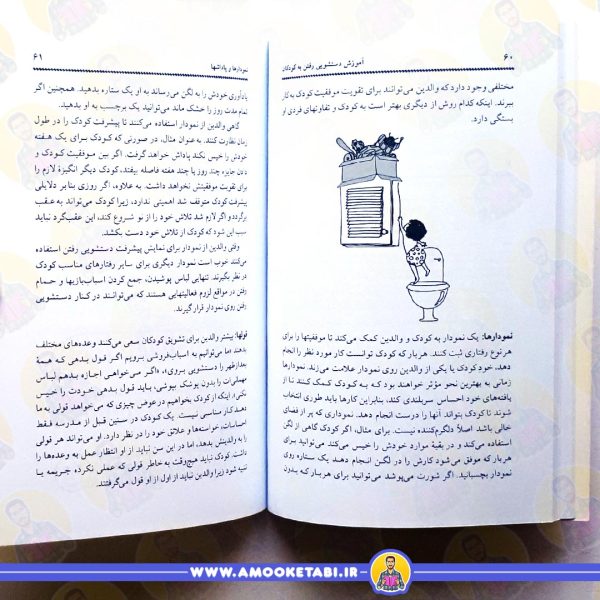 ۶۰
آموزش دستشویی رفتن به کودکان
مختلفی وجود دارد که والدین می‌توانند برای تقویت موفقیت کودک به کار
ببرند. اینکه کدام روش از دیگری بهتر است به کودک و تفاوتهای فردی او
بستگی دارد.
نمودارها: یک نمودار به کودک و والدین کمک می‌کند تا موفقیتها را برای
هر نوع رفتاری ثبت کنند. هر بار که کودک توانست کار مورد نظر را انجام
دهد، خود کودک یا یکی از والدین روی نمودار علامت می‌زند. نمودارها
زمانی به بهترین نحو مؤثر خواهند بود که به کودک کمک کنند تا از
یافته‌های خود احساس سربلندی کند، بنابراین کارها باید طوری انتخاب
شوند تا کودک بتواند آنها را درست انجام دهد. نموداری که پر از فضای
خالی باشد اصلاً دلگرم‌کننده نیست. برای مثال، اگر کودک گاهی از لگن
استفاده می‌کند و در بقیهٔ موارد خودش را خیس می‌کند می‌توانید برای
هر بار که موفق می‌شود کارش را در لگن انجام دهد یک ستاره روی
نمودار بچسبانید. اگر شورت می‌پوشد می‌توانید برای هر بار که بدون
نمودارها و پاداشها
۶۱
یادآوری خودش را به لگن می‌رساند به او یک ستاره بدهید. همچنین اگر
تمام مدت روز را خشک ماند می‌توانید یک برچسب به او بدهید.
گاهی والدین از نمودار استفاده می‌کنند تا پیشرفت کودک را در طول
زمان نظارت کنند. به عنوان مثال، در صورتی که کودک برای یک هفته
خودش را خیس نکند پاداش خواهد گرفت. اگر بین موفقیت کودک و
دادن جایزه چند روز یا چند هفته فاصله بیفتد، کودک دیگر انگیزهٔ لازم را
برای تقویت موفقیتش نخواهد داشت. به علاوه، اگر روزی بنابر دلایلی
پیشرفت کودک متوقف شد اهمیتی ندارد، زیرا کودک می‌تواند به عقب
برگردد و اگر لازم شد تلاش خود را از نو شروع کند، این عقب‌گرد نباید
سبب این شود که کودک از تلاش خود دست بکشد.
وقتی والدین از نمودار برای نمایش پیشرفت دستشویی رفتن استفاده
می‌کنند خوب است نمودار دیگری برای سایر رفتارهای مناسب کودک
در نظر بگیرند. تنهایی لباس پوشیدن، جمع کردن اسباب‌بازیها و حمام
رفتن در مواقع لزوم فعالیتهایی هستند که می‌توانند در کنار دستشویی
رفتن روی نمودار قرار گیرند.
قولها: بیشتر والدین برای تشویق کودکان سعی می‌کنند وعده‌های مختلف
بدهند اما می‌توانیم به اسباب‌فروشی برویم اگر قول بدهی که همهٔ
بعدازظهر را دستشویی بروی»، «اگر می‌خواهی اجازه بدهم لباس
مهمانی‌ات را بدون پوشک بپوشی، باید قول بدهی خودت را خیس
نکنی». اینکه از کودک بخواهیم در عوض چیزی که می‌خواهد قولی به ما
دهد کار مناسبی نیست. یک کودک در سنین قبل از مدرسه فقط
احساسات، خواسته‌ها و علائق خود را در نظر دارد. او می‌تواند هر قولی
را به والدینش بدهد، اما در این سن نباید از او انتظار عمل به وعده‌ها را
داشت. کودک نباید هیچ‌وقت به خاطر قولی که عملی نکرده جریمه یا
تنبیه شود زیرا والدین نباید از اول از او قول می‌گرفتند.
WWW.AMOOKETABI.IR